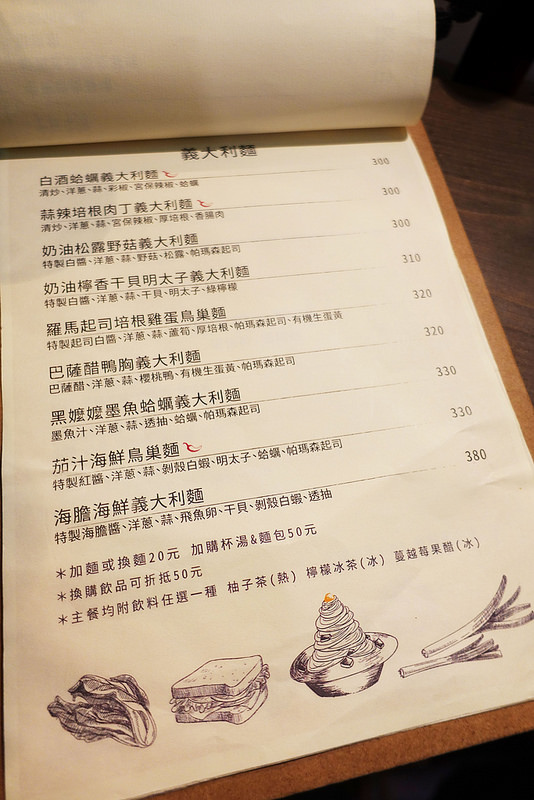 義大利麵
白酒蛤蠣義大利麵 300
清炒、洋蔥、蒜、彩椒、宮保辣椒、蛤蠣
蒜辣培根肉丁義大利麵 300
清炒、洋蔥、蒜、宮保辣椒、厚培根、香腸肉
奶油松露野菇義大利麵 300
特製白醬、洋蔥、蒜、野菇、松露、帕瑪森起司
奶油檸香干貝明太子義大利麵 310
特製白醬、洋蔥、蒜、干貝、明太子、綠檸檬
羅馬起司培根雞蛋鳥巢麵 320
特製起司白醬、洋蔥、蒜、蘆筍、厚培根、帕瑪森起司、有機生蛋黃
巴薩醋鴨胸義大利麵 320
巴薩醋、洋蔥、蒜、櫻桃鴨、有機生蛋黃、帕瑪森起司
黑嬤嬤墨魚蛤蠣義大利麵 330
墨魚汁、洋蔥、蒜、透抽、蛤蠣、帕瑪森起司
茄汁海鮮鳥巢麵 330
特製紅醬、洋蔥、蒜、剝殼白蝦、明太子、蛤蠣、帕瑪森起司
海膽海鮮義大利麵 380
特製海膽醬、洋蔥、蒜、飛魚卵、干貝、剝殼白蝦、透抽
＊加麵或換麵20元 加購杯湯&麵包50元
＊換購飲品可折抵50元
＊主餐均附飲料任選一種 柚子茶(熱) 檸檬冰茶(冰) 蔓越莓果醋(冰)